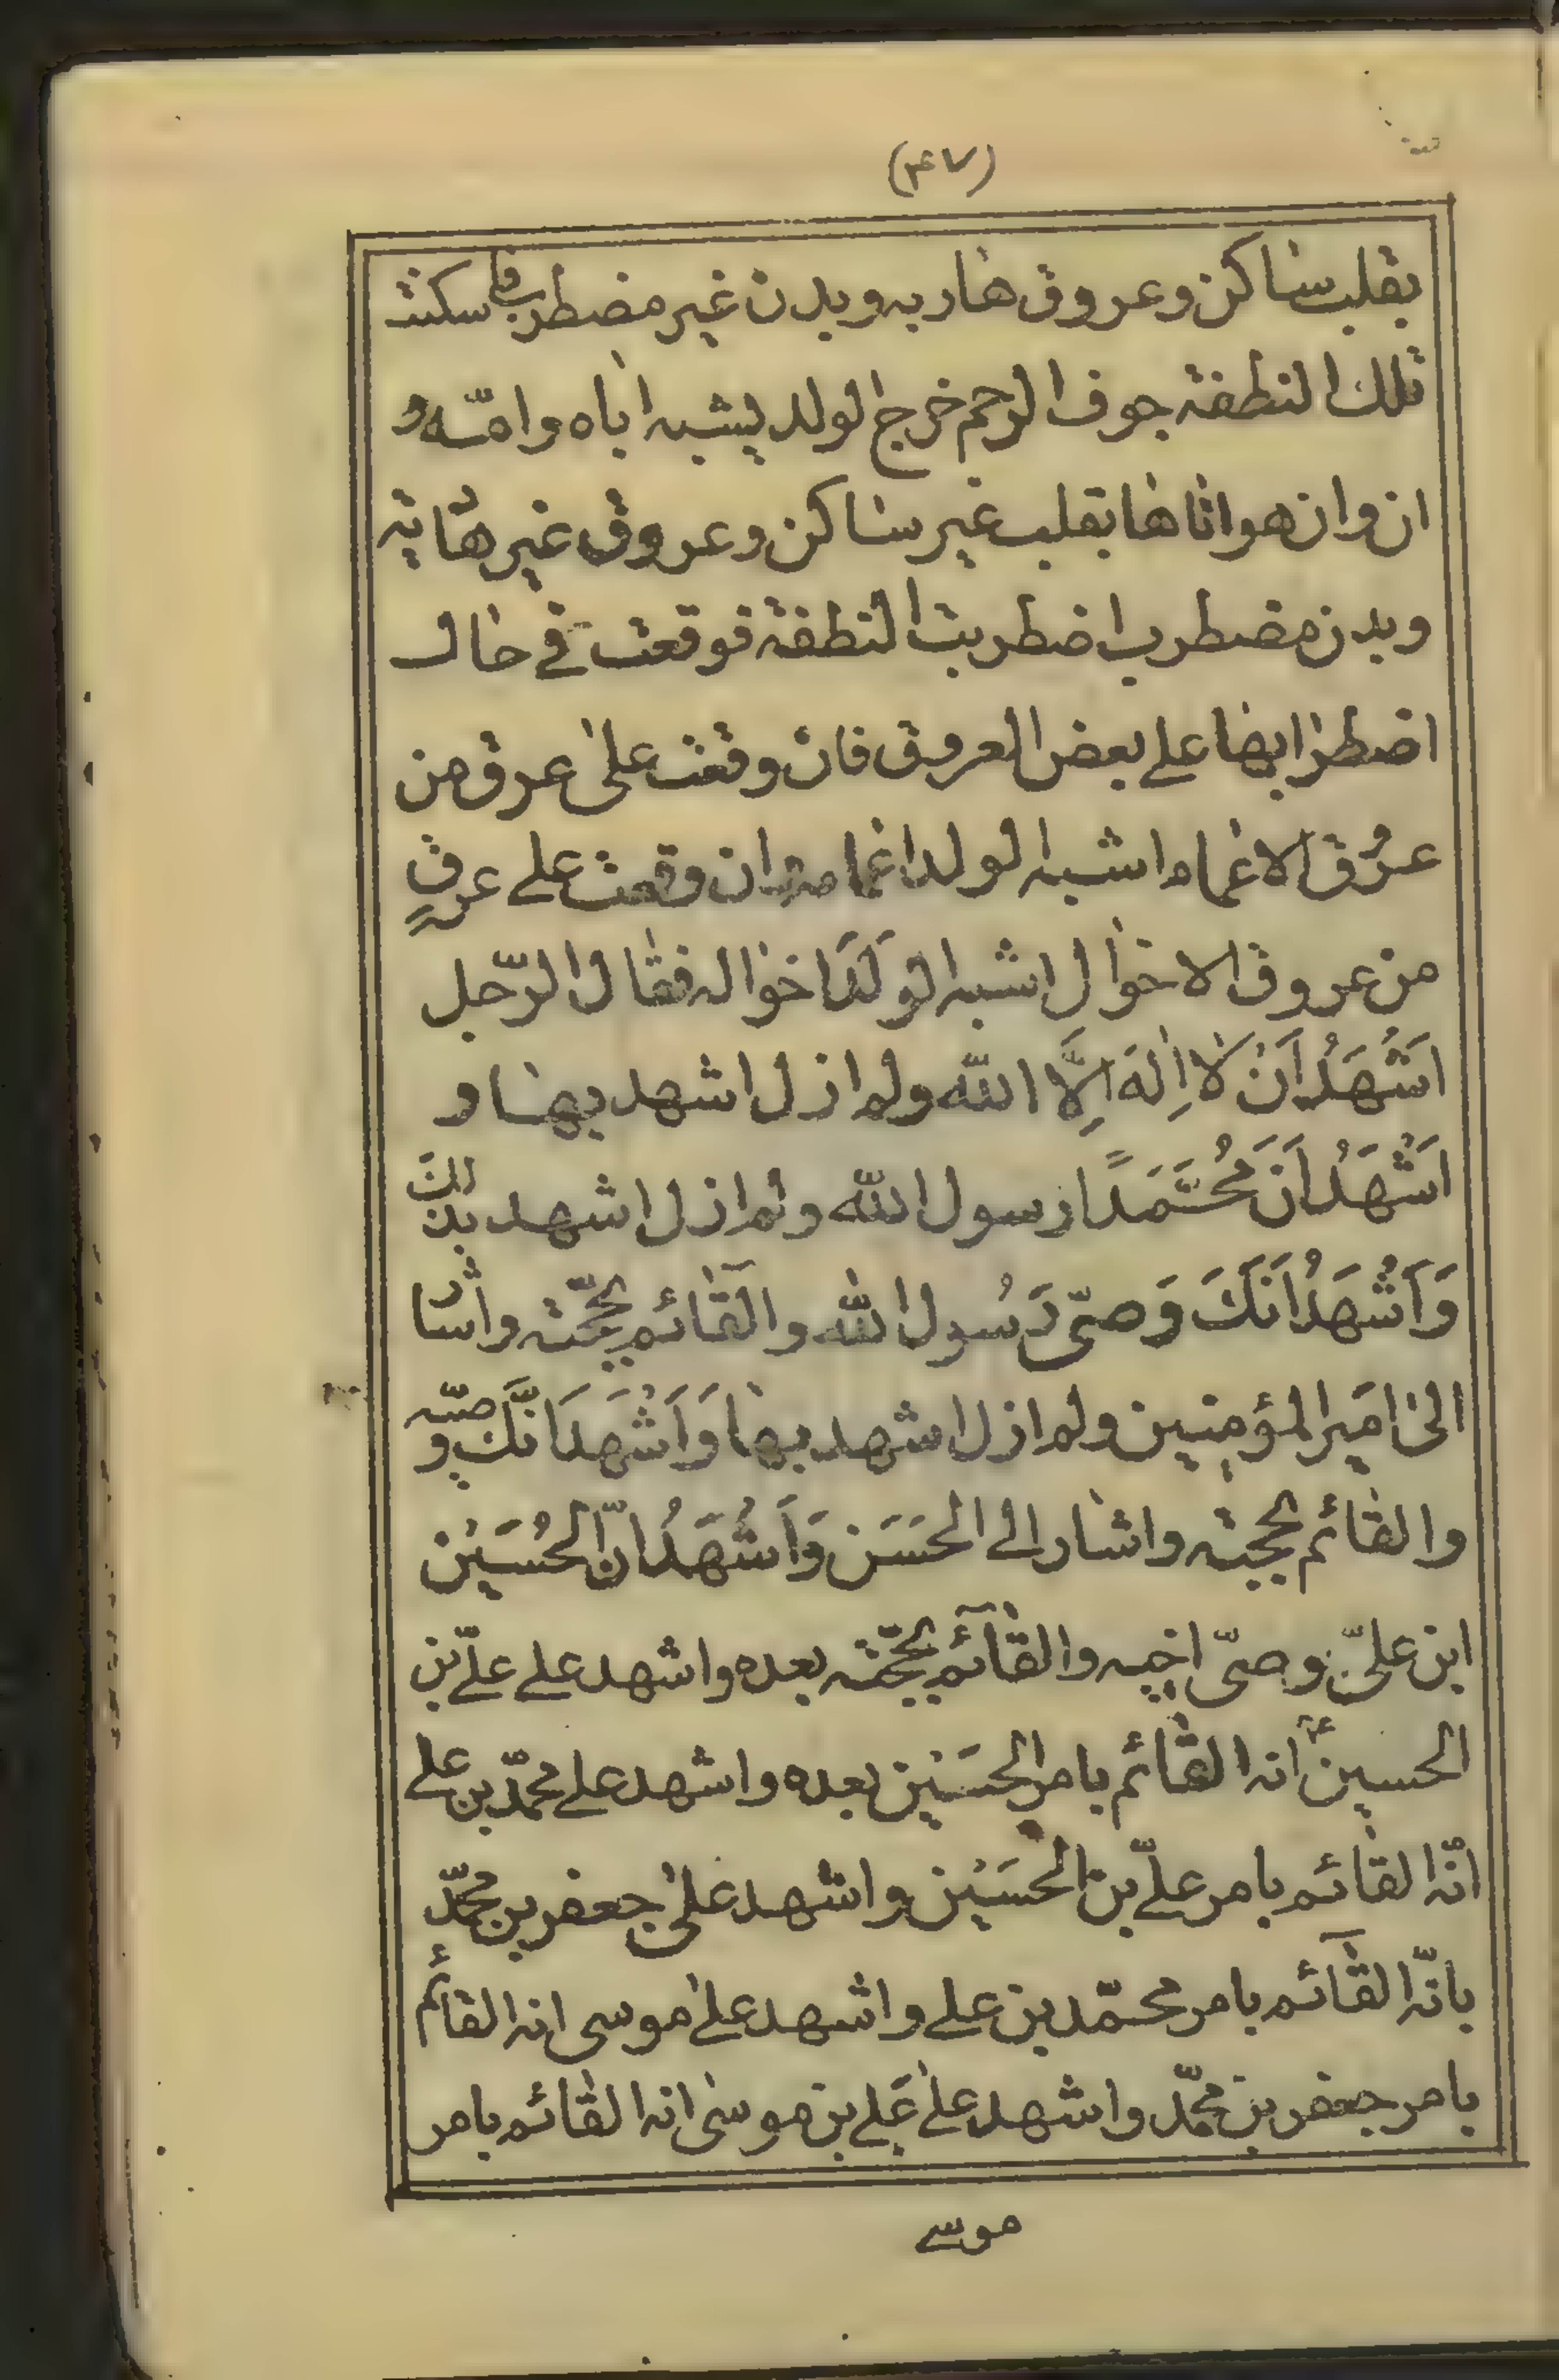 (۴۷)
بقلب ساكن وعروق هاربه وبدن غير مضطرب فاسكنت
تلك النطفة جوف الرحم خرج الولد يشبه اباه وامّه و
ان وان هو اتاها بقلب غير ساكن وعروق غير هاتئه
وبدن مضطرب اضطربت النطفة فوقعت في حال
اضطرابها على بعض العروق فان وقعت على عرق من
عرُوق الاعمام اشبه الولد اعمامه وان وقعت على عرقٍ
من عروق الاخوال اشبه الوَلَدَ اخواله فقال الرّجل
اَشْهَدُ اَنْ لَا اِلٰهَ اِلَّا الله ولم ازل اشهد بها و
اَشْهَدُ اَنَّ مُحَمَّدًا رسول الله ولم ازل اشهد بذلك
وَاَشْهَدُ اَنَّكَ وَصىّ رَسُول الله والقآئم بحجّته واشا
الى امَير المؤمنين ولم ازل اشهد بها وَاَشْهَدَ اَنَّكَ وصيّه
والقائم بحجته واشار الى الحَسَن وَاَشْهَدُ انّ الحُسَيْن
ابن علىّ وصىّ اخيه والقآئم بحجّته بعده واشهد على علىّ بن
الحسين انه القائم بامر الحسَيْن بعده واشهد على محمّد بن على
انّه القائم بامر علىّ بن الحسَيْن واشهد على جعفر بن محمّد
بانّه القآئم بامر محمّد بن على واشهد على موسى انه القائم
بامر جعفر بن محمّد واشهد على عَلى بن موسى انه القائم بامر
موسے